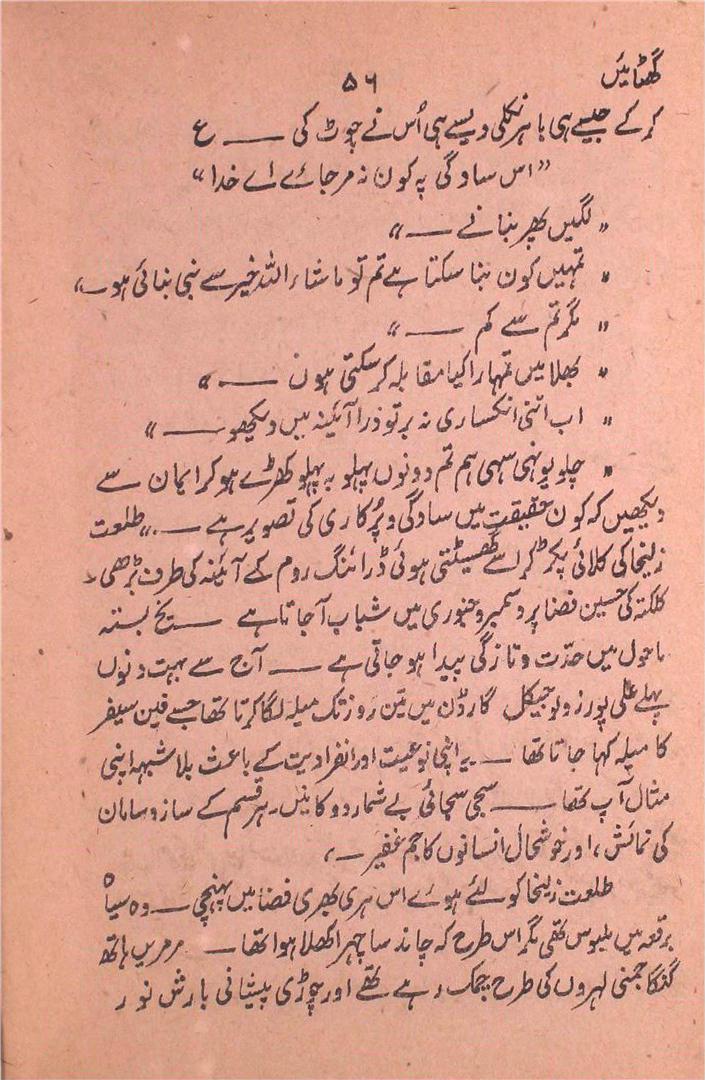 گھٹائیں
۵۶
کر کے جیسے ہی باہر نکلی ویسے ہی اُس نے چوٹ کی ـــــ ع
"اس سادگی پہ کون نہ مر جائے اے خدا"
"لگیں پھر بنانے ـــــ"
"تمہیں کون بنا سکتا ہے تم تو ماشاء اللہ خیر سے بنی بنائی ہو۔"
"مگر تم سے کم ـــــ"
"بھلا میں تمہارا کیا مقابلہ کر سکتی ہوں ـــــ"
"اب اتنی انکساری نہ برتو ذرا آئینہ میں دیکھو ـــــ"
"چلو یونہی سہی ہم تم دونوں پہلو بہ پہلو کھڑے ہو کر ایمان سے
دیکھیں کہ کون حقیقت میں سادگی و پُرکاری کی تصویر ہے ـــــ" طلعت
زلیخا کی کلائی پکڑ کر اسے گھسیٹتی ہوئی ڈرائنگ روم کے آئینہ کی طرف بڑھی۔
کلکتہ کی حسین فضا پر دسمبر و جنوری میں شباب آ جاتا ہے ـــــ یخ بستہ
ماحول میں حدّت و تازگی پیدا ہو جاتی ہے ـــــ آج سے بہت دنوں
پہلے علی پور زولوجیکل گارڈن میں تین روز تک میلہ لگا کرتا تھا جسے فین سیفر
کا میلہ کہا جاتا تھا ـــــ یہ اپنی نوعیت اور انفرادیت کے باعث بلاشبہہ اپنی
مثال آپ تھا ـــــ سجی سجائی بے شمار دوکانیں۔ ہر قسم کے ساز و سامان
کی نمائش، اور خوشحال انسانوں کا جم غفیر ـــــ،
طلعت زلیخا کو لئے ہوئے اس ہری بھری فضا میں پہنچی ـــــ وہ سیاہ
برقعہ میں ملبوس تھی مگر اس طرح کہ چاند سا چہرا کھلا ہوا تھا ـــــ مرمریں ہاتھ
گنگا جمنی لہروں کی طرح چمک رہے تھے اور چوڑی پیشانی بارش نور